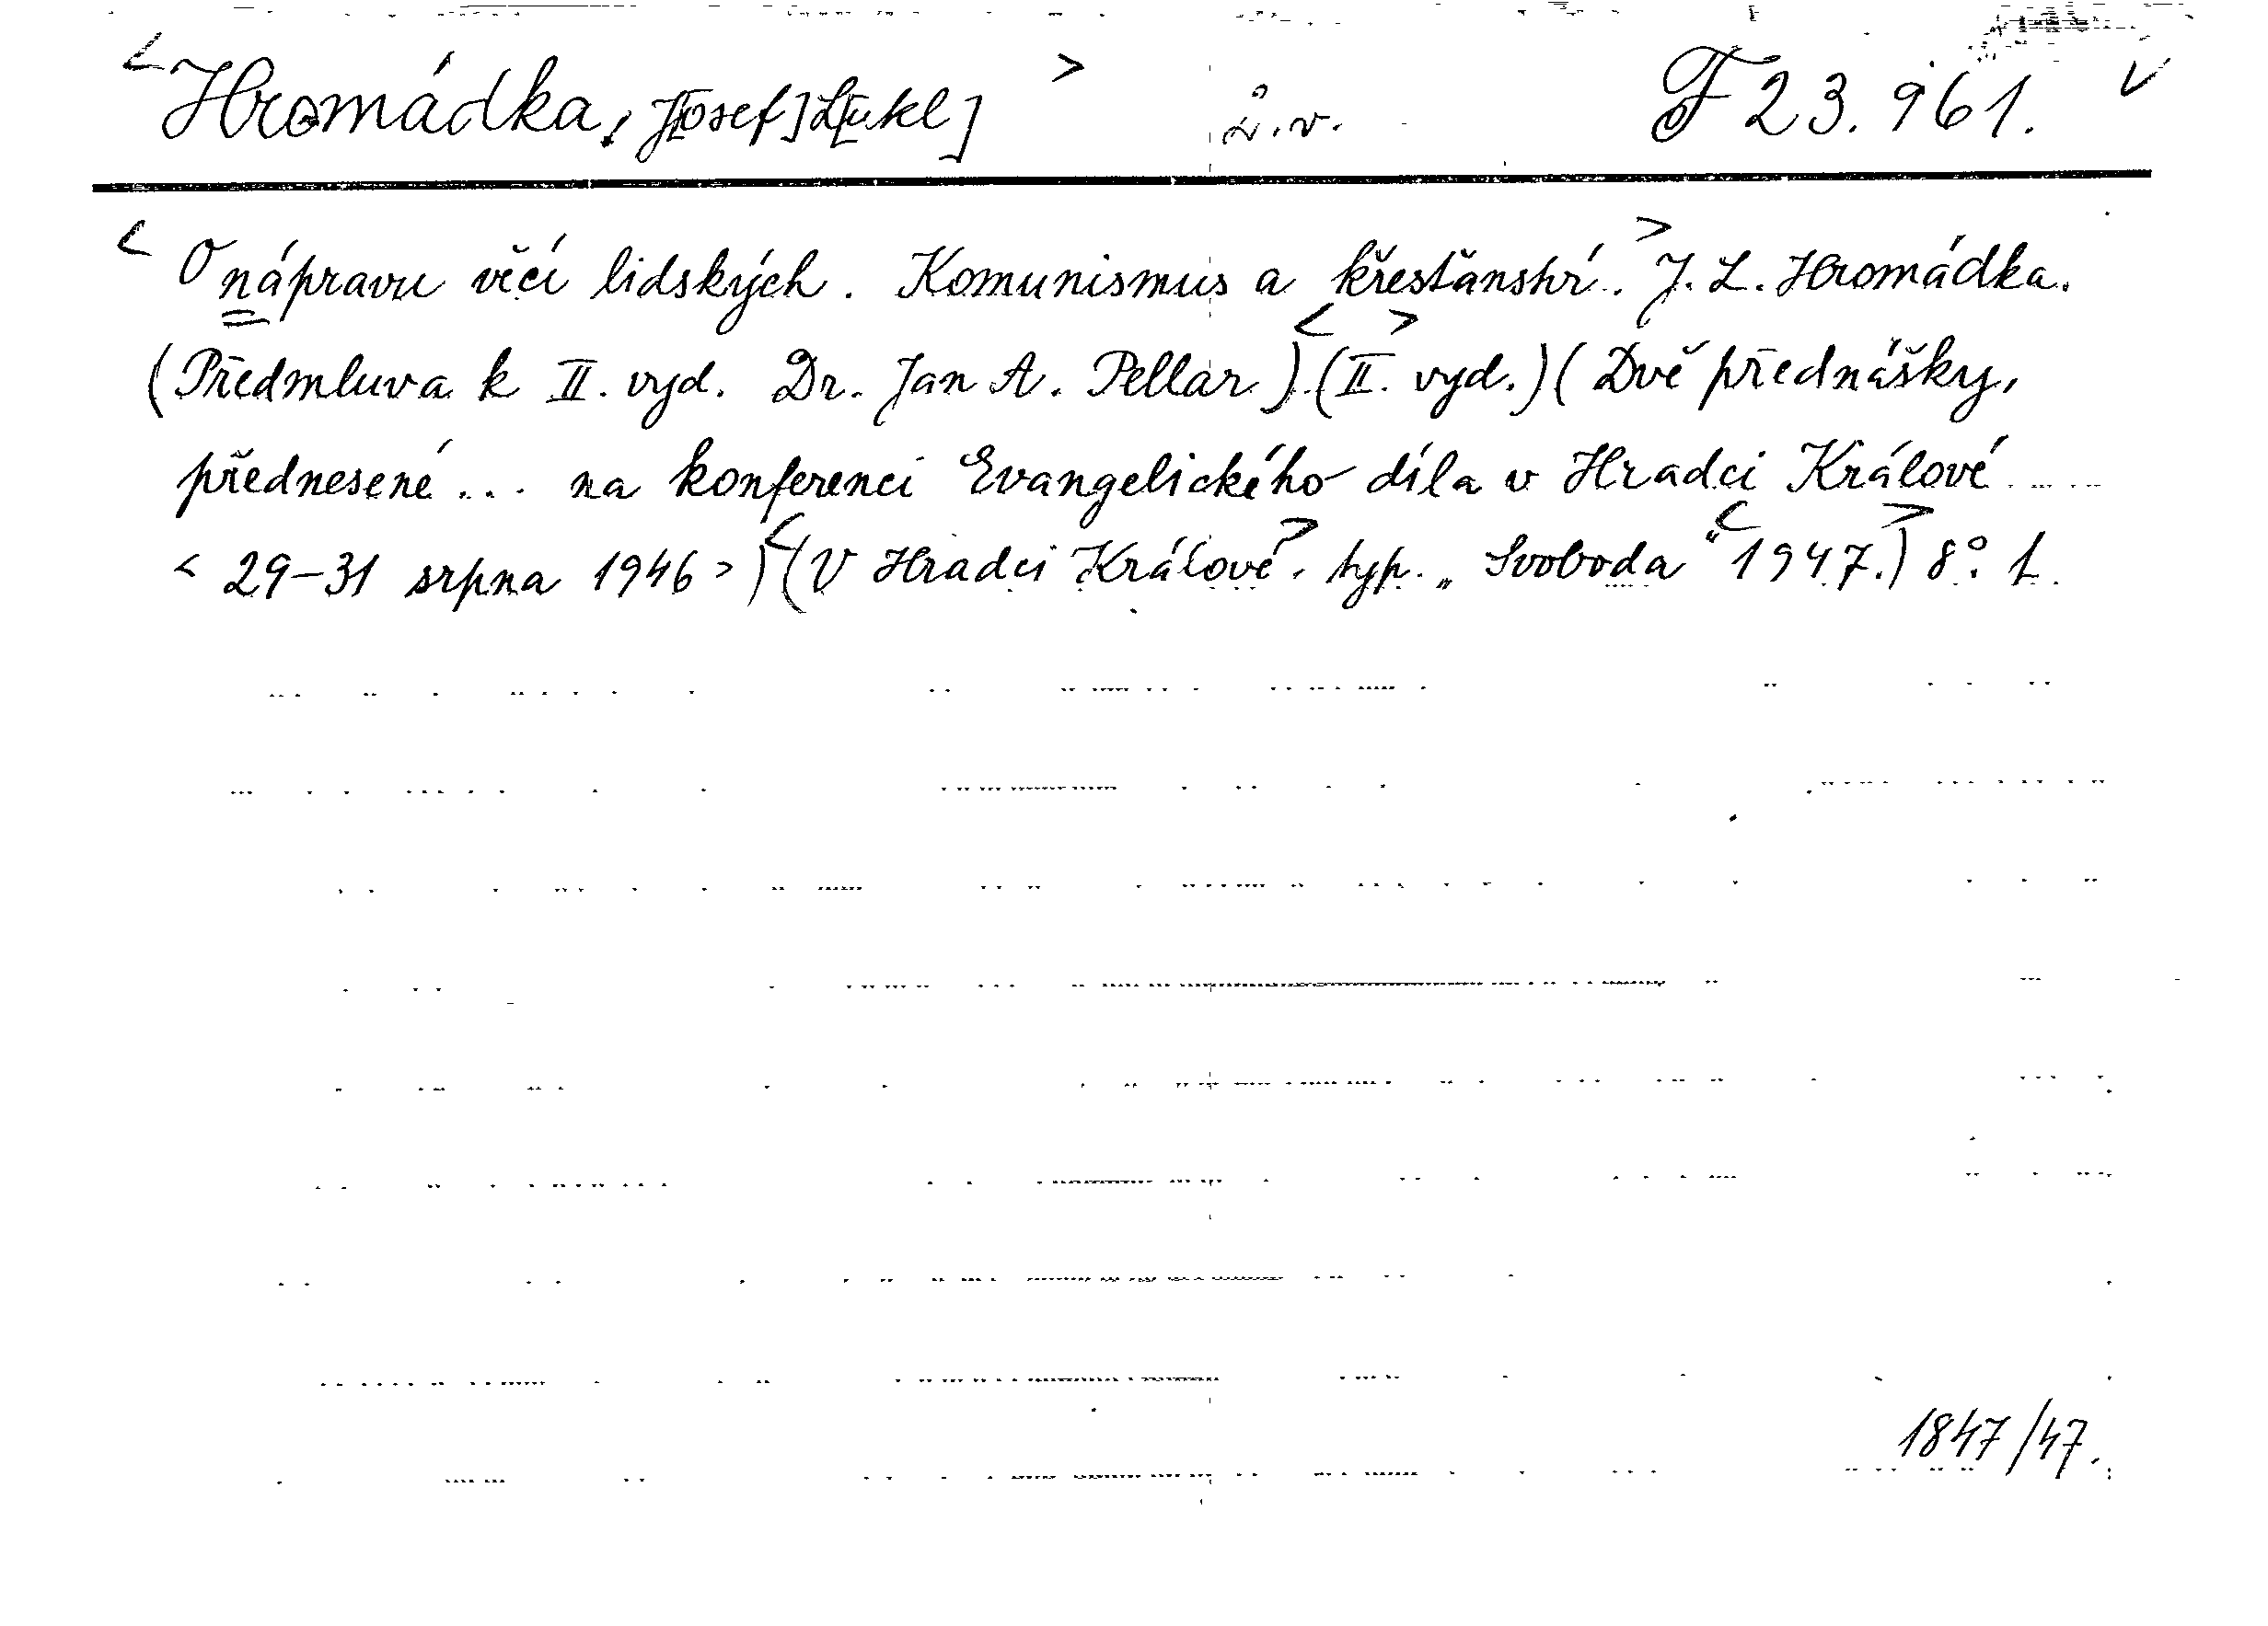 < Hromádka, J[osef] L[ukl] > F 23.961. v
< O nápravu věcí lidských. Komunismus a křesťanství. > J. L. Hromádka.
(Předmluva k II. vyd. Dr. Jan A. Pellar). < (II. > vyd.) (Dvě přednášky,
přednesené ... na konferenci Evangelického díla v Hradci Králové
< 29–31 srpna 1946 > ) < (V Hradci Králové > , typ. „Svoboda“ < 1947. > ) 8°. L.
1847/47.